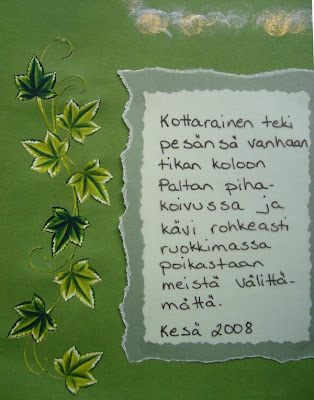 Kottarainen teki
pesänsä vanhaan
tikan koloon
Paltan piha-
koivussa ja
kävi rohkeasti
ruokkimassa
poikastaan
meistä välittä-
mättä.
Kesä 2008